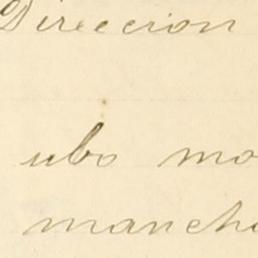 Direccion
ubo mo
mancho